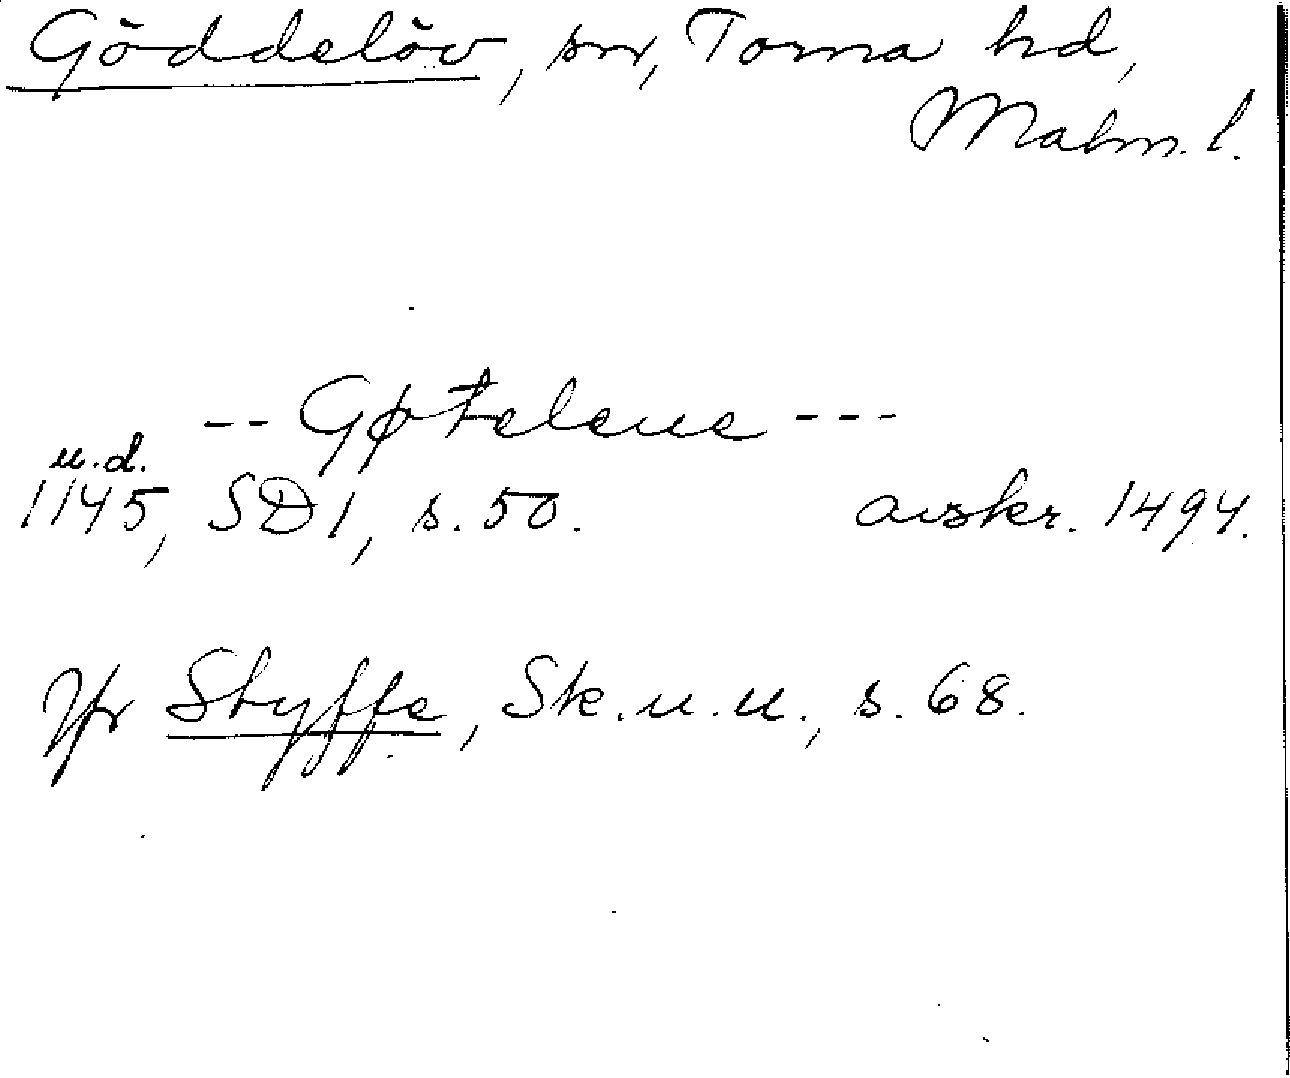 Göddelöv, sn, Torna hd,
Malm. l.
-- Gøteleue ---
u.d.
1145, SD 1, s. 50. avskr. 1494.
Jfr Styffe, Sk. u. u., s. 68.